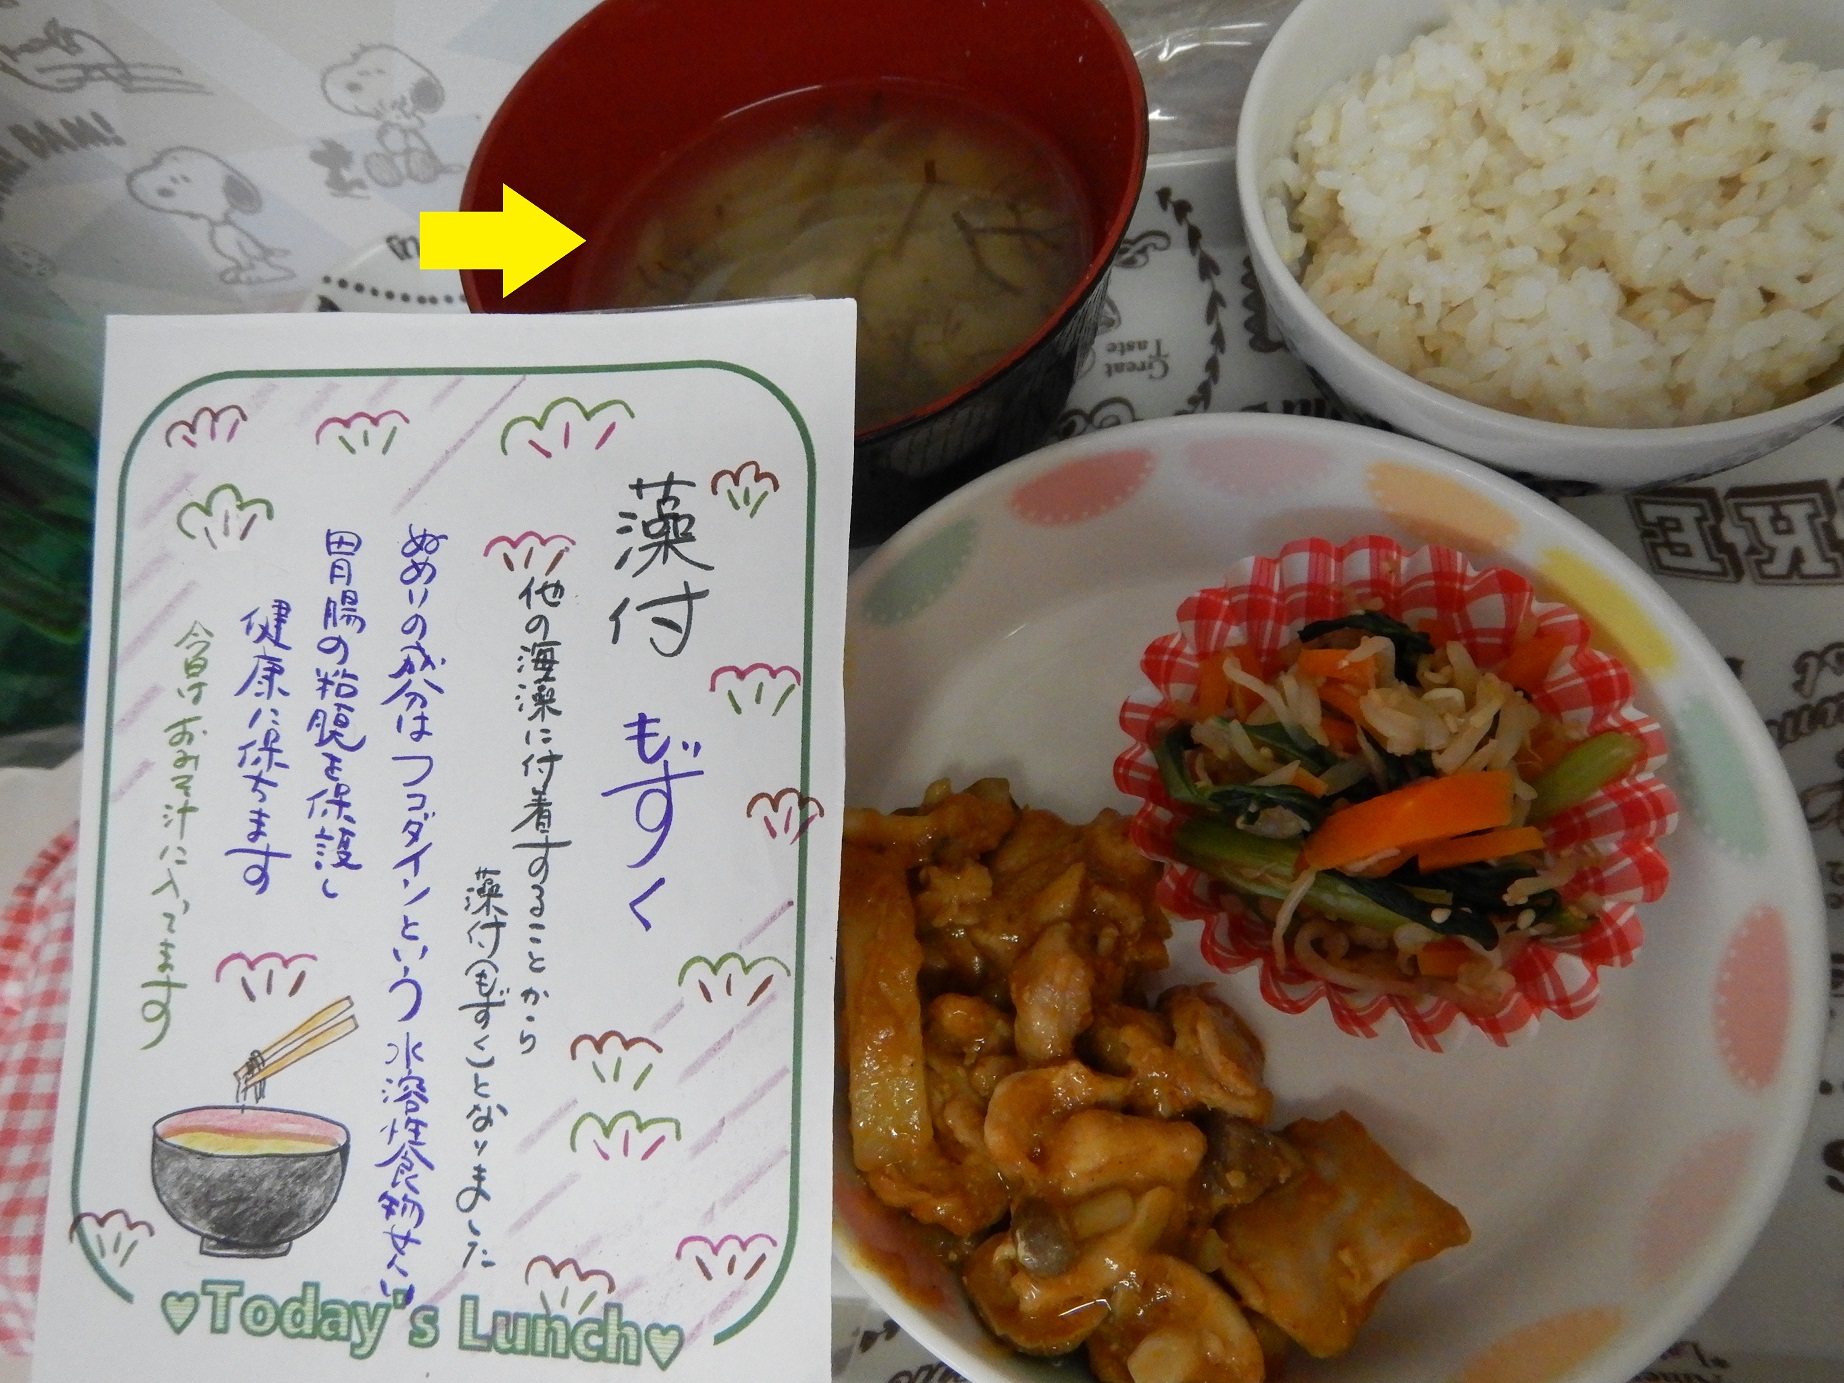 藻付 もずく
他の海藻に付着することから
藻付(もずく)となりました
ぬめりの成分はフコダインという水溶性食物せんい
胃腸の粘膜を保護し
健康に保ちます
今日はおみそ汁に入ってます
♥Today's Lunch♥
BAM!
Great
Taste